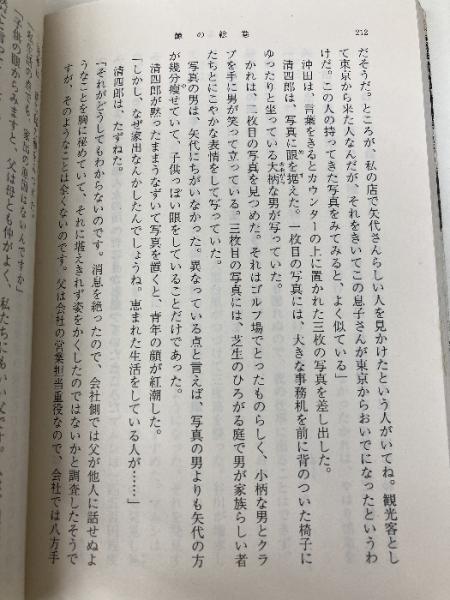 252
鯛の絵巻
だそうだ。ところが、私の店で矢代さんらしい人を見かけたという人がいてね。観光客とし
て東京から来た人なんだが、それをきいてこの息子さんが東京からおいでになったというわ
けだ。この人の持ってきた写真をみてみると、よく似ている」
沖田は、言葉をきるとカウンターの上に置かれた三枚の写真を差し出した。
清四郎は、写真に眼を据えた。一枚目の写真には、大きな事務机を前に背のついた椅子に
ゆったりと坐っている大柄な男が写っていた。
かれは、二枚目の写真を見つめた。それはゴルフ場でとったものらしく、小柄な男とクラ
ブを手に男が笑って立っている。三枚目の写真には、芝生のひろがる庭で男が家族らしい者
たちとにこやかな表情をして写っていた。
写真の男は、矢代にちがいなかった。異なっている点と言えば、写真の男よりも矢代の方
が幾分瘦せていて、子供っぽい眼をしていることだけであった。
清四郎が黙ったままうなずいて写真を置くと、青年の顔が紅潮した。
「しかし、なぜ家出なんかしたんでしょうね。恵まれた生活をしている人が……」
清四郎は、たずねた。
「それがどうしてもわからないのです。消息を絶ったので、会社側では父が他人に話せぬよ
うなことを胸に秘めていて、それに堪えきれず姿をかくしたのではないかと調査したそうで
すが、そのようなことは全くないのです。父は会社の営業担当重役なので、会社では八方手
「子供の眼からみますと、父は母とも仲がよく、私たちにもいい父です。